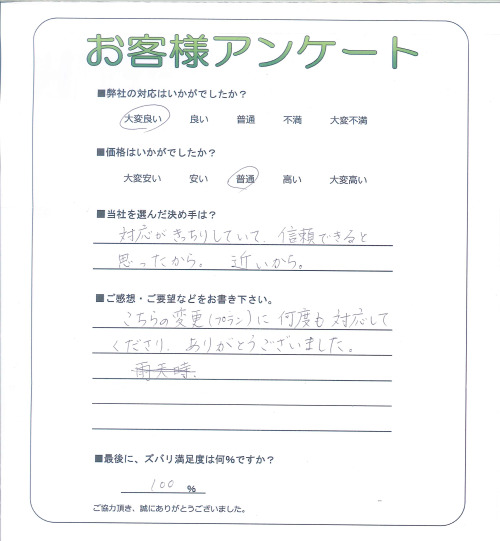 お客様アンケート
■弊社の対応はいかがでしたか？
大変良い 良い 普通 不満 大変不満
■価格はいかがでしたか？
大変安い 安い 普通 高い 大変高い
■当社を選んだ決め手は？
対応がきっちりしていて、信頼できると
思ったから。 近いから。
■ご感想・ご要望などをお書き下さい。
こちらの変更(プラン)に何度も対応して
くださり、ありがとうございました。
雨天時、
■最後に、ズバリ満足度は何%ですか？
100 %
ご協力頂き、誠にありがとうございました。